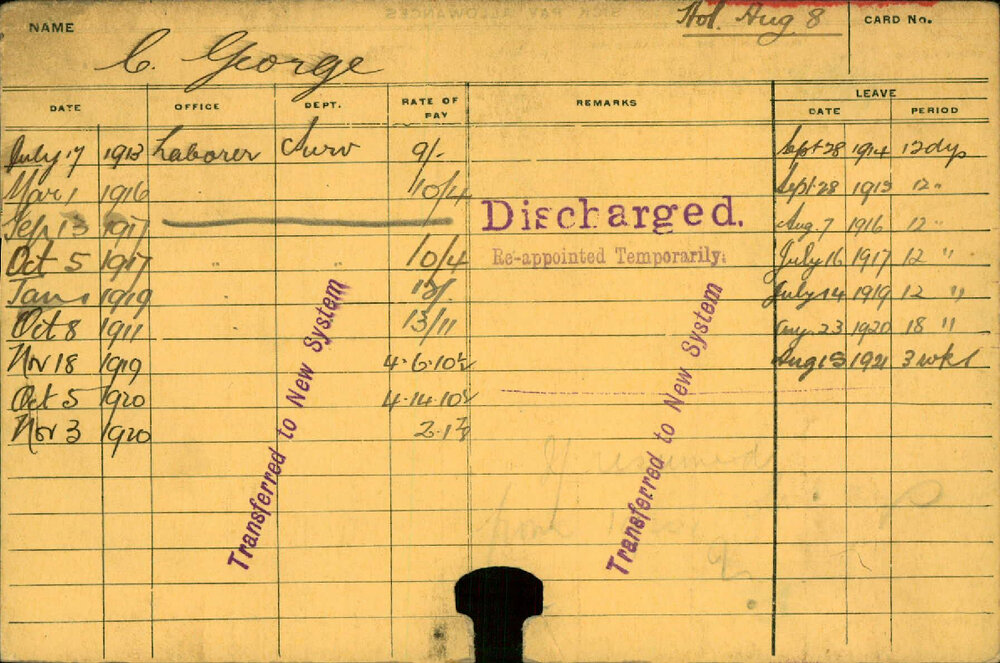 NAME
C. George
Hol. Aug 8
CARD No.
DATE OFFICE DEPT. RATE OF PAY REMARKS LEAVE
DATE PERIOD
July 17 1913 Laborer Surv 9/- Sept 28 1914 12 dys
Mar 1 1916 10/4 Sept 28 1915 12 "
Sep 13 1917 Discharged. Aug. 7 1916 12 "
Oct 5 1917 " " 10/4 Re-appointed Temporarily. July 16 1917 12 "
Jan 1 1919 12/- July 14 1919 12 "
Oct 8 1911 13/11 Aug. 23 1920 18 "
Nov 18 1919 4.6.10½ Aug 15 1921 3 wks
Oct 5 1920 4.14.10½
Nov 3 1920 2.1½
Transferred to New System
Transferred to New System
If resumed